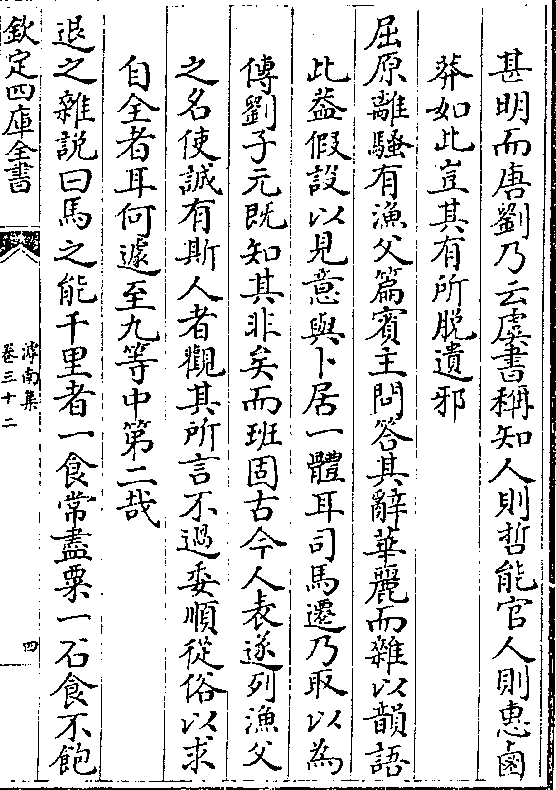 甚明而唐劉乃云虞書稱知人則哲能官人則惠鹵
莽如此豈其有所脱遺邪
屈原離騷有漁父篇賓主問答其辭華麗而雜以韻語
此葢假設以見意與卜居一體耳司馬遷乃取以為
傳劉子元既知其非矣而班固古今人表遂列漁父
之名使誠有斯人者觀其所言不過委順從俗以求
自全者耳何遽至九等中第二哉
退之雜説曰馬之能千里者一食常盡粟一石食不飽
欽定四庫全書
滹南集
卷三十二
四